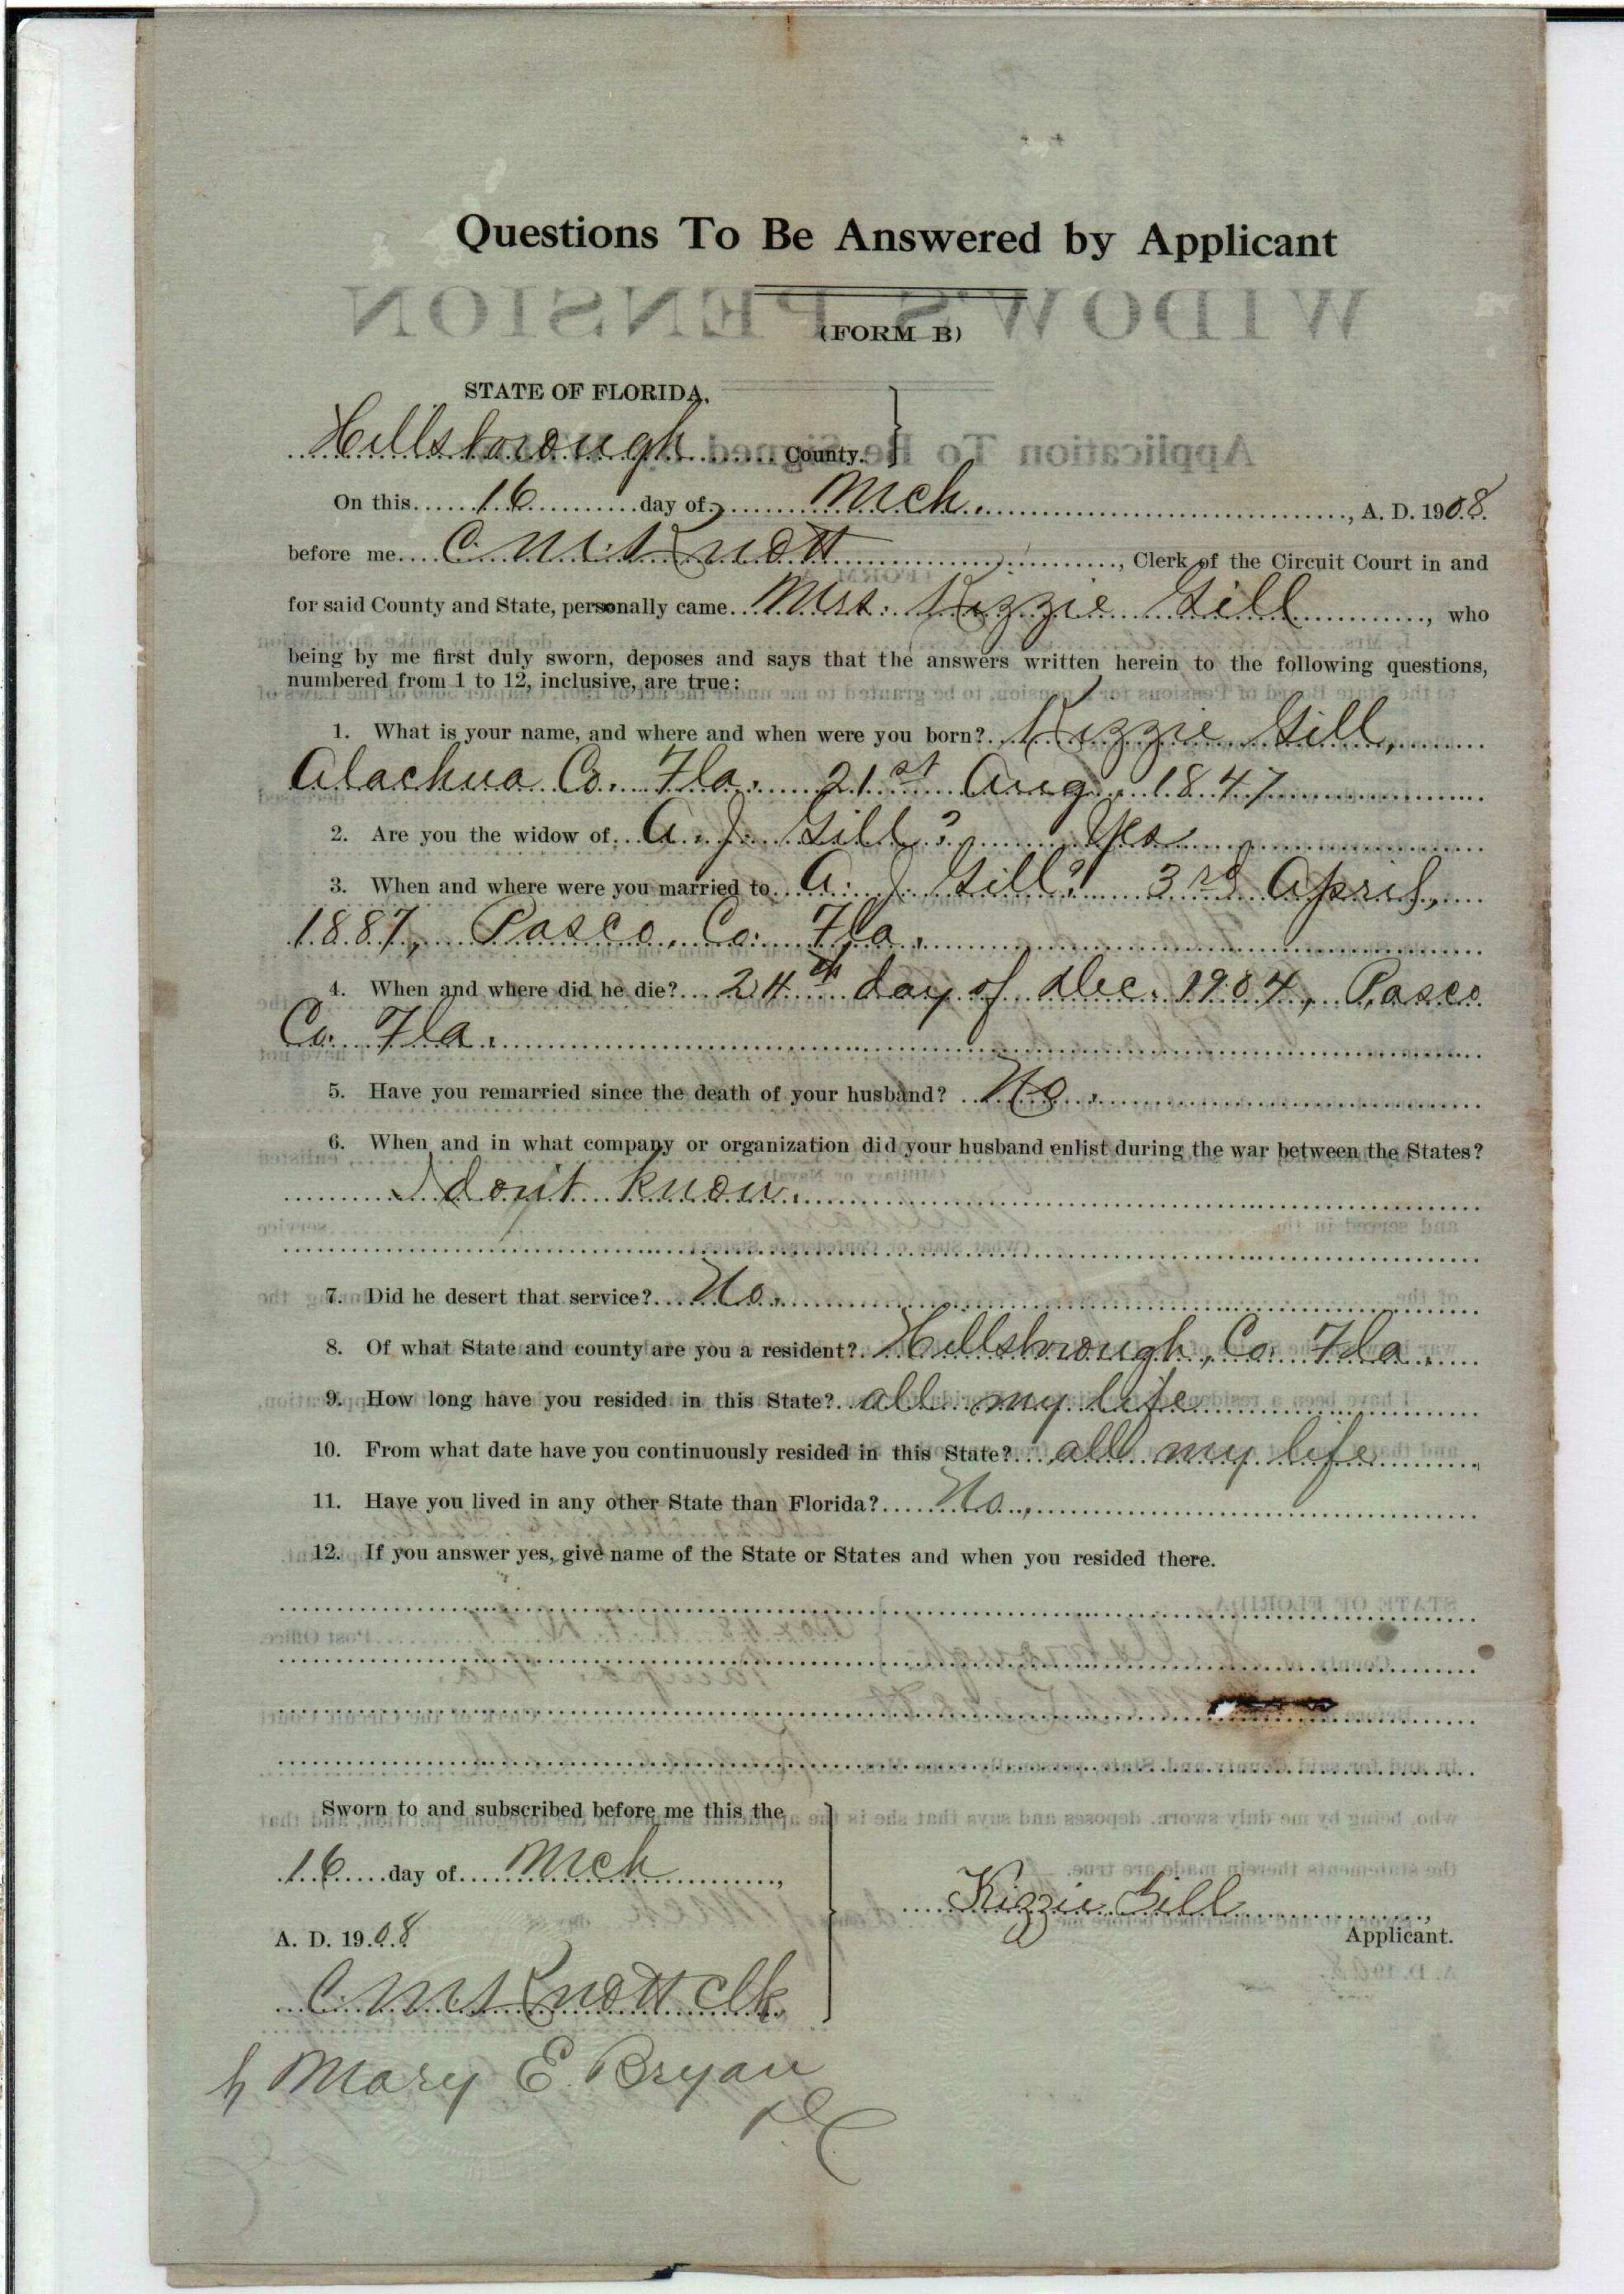 Questions To Be Answered by Applicant
(FORM B)
STATE OF FLORIDA,
Hillsborough County.
On this 16 day of Mch. , A. D. 1908.
before me C. M. Knott , Clerk of the Circuit Court in and
for said County and State, personally came Mrs. Kizzie Gill , who
being by me first duly sworn, deposes and says that the answers written herein to the following questions,
numbered from 1 to 12, inclusive, are true:
1. What is your name, and where and when were you born? Kizzie Gill,
Alachua Co. Fla. 21st Aug. 1847
2. Are you the widow of A. J. Gill? Yes
3. When and where were you married to A. J. Gill? 3rd April,
1887, Pasco Co. Fla.
4. When and where did he die? 24th day of Dec. 1904, Pasco
Co. Fla.
5. Have you remarried since the death of your husband? No.
6. When and in what company or organization did your husband enlist during the war between the States?
I don't know.
7. Did he desert that service? No.
8. Of what State and county are you a resident? Hillsborough, Co. Fla.
9. How long have you resided in this State? all my life
10. From what date have you continuously resided in this State? all my life
11. Have you lived in any other State than Florida? No.
12. If you answer yes, give name of the State or States and when you resided there.
Sworn to and subscribed before me this the
16 day of Mch ,
A. D. 1908
Kizzie Gill ,
Applicant.
C. M. Knott Clk
by Mary E. Bryan
DC